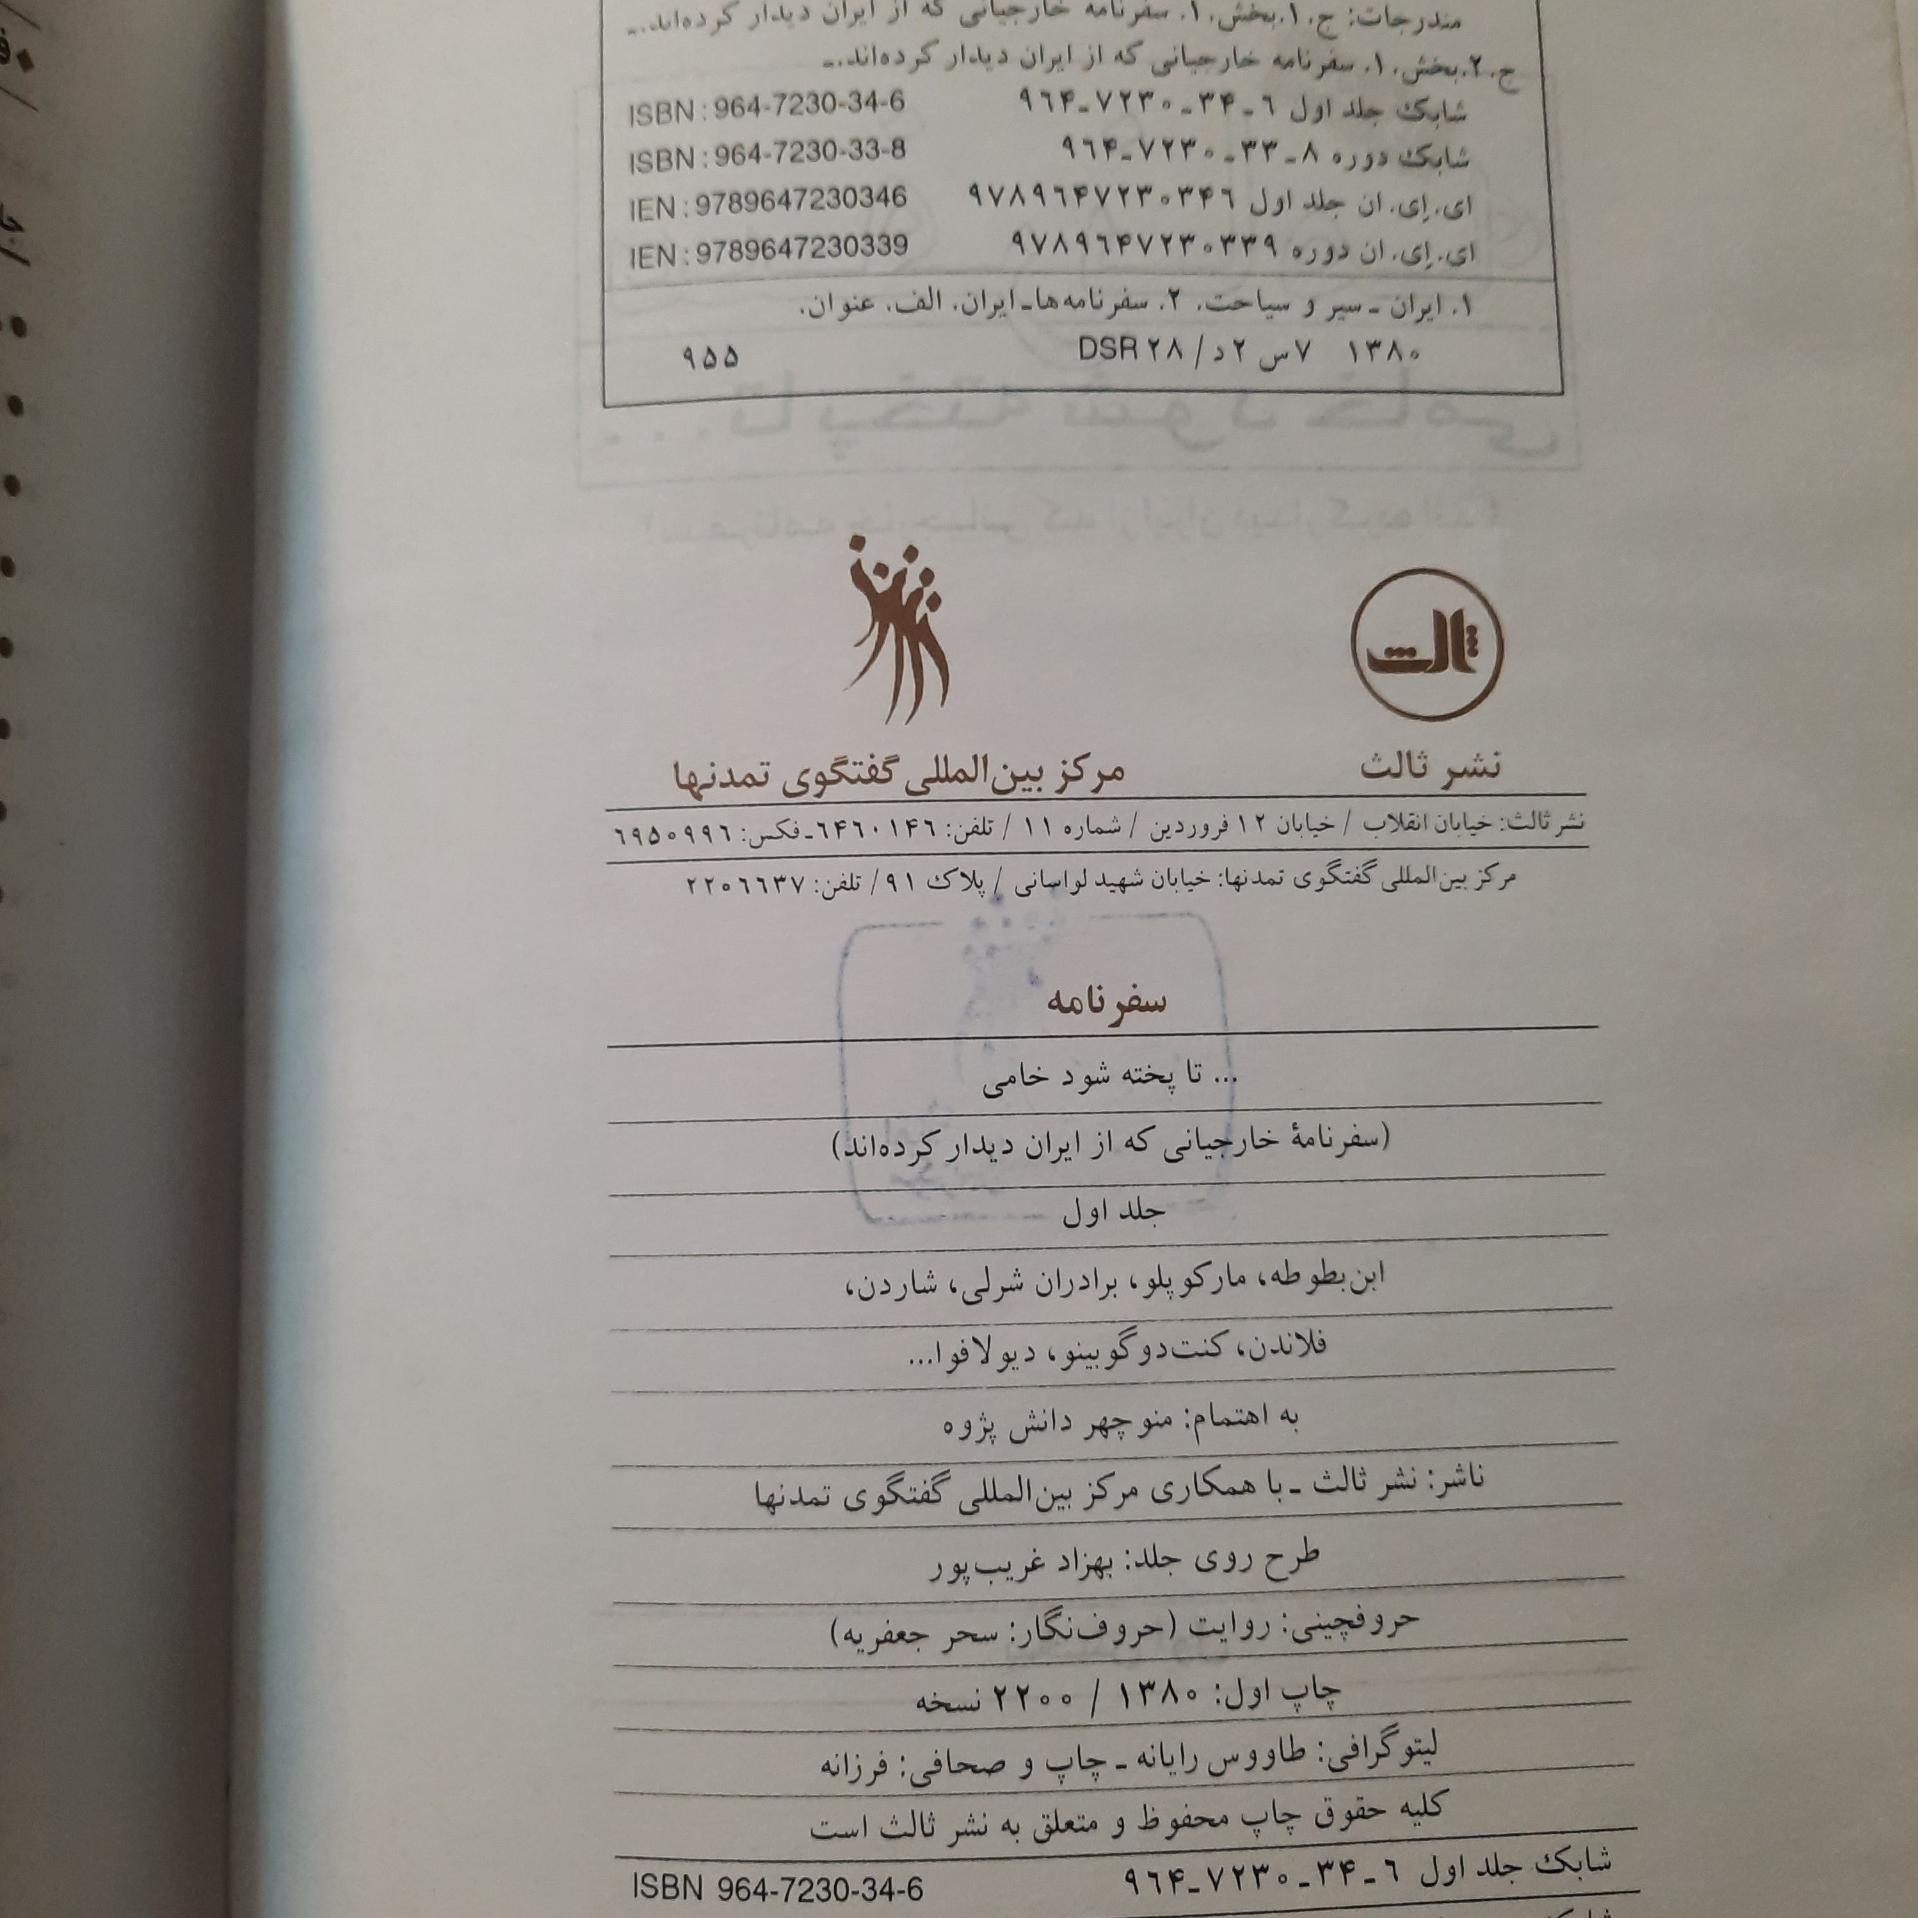 مندرجات: ج.۱.بخش.۱. سفرنامه خارجیانی که از ایران دیدار کرده‌اند.ـ
ج.۲.بخش.۱. سفرنامه خارجیانی که از ایران دیدار کرده‌اند.ـ
شابک جلد اول ۶ـ۳۴ـ۷۲۳۰ـ۹۶۴ ISBN : 964-7230-34-6
شابک دوره ۸ـ۳۳ـ۷۲۳۰ـ۹۶۴ ISBN : 964-7230-33-8
ای.اِی.ان جلد اول ۹۷۸۹۶۴۷۲۳۰۳۴۶ IEN : 9789647230346
ای.اِی.ان دوره ۹۷۸۹۶۴۷۲۳۰۳۳۹ IEN : 9789647230339
۱. ایران ـ سیر و سیاحت. ۲. سفرنامه‌هاـایران. الف. عنوان.
۱۳۸۰ ۷س ۲د/ ۲۸ DSR ۹۵۵
ثالث
نشر ثالث
مرکز بین‌المللی گفتگوی تمدنها
نشر ثالث: خیابان انقلاب / خیابان ۱۲ فروردین / شماره ۱۱ / تلفن: ۶۴۶۰۱۴۶ـفکس: ۶۹۵۰۹۹۶
مرکز بین‌المللی گفتگوی تمدنها: خیابان شهید لواسانی / پلاک ۹۱/ تلفن: ۲۲۰۶۶۳۷
سفرنامه
... تا پخته شود خامی
(سفرنامهٔ خارجیانی که از ایران دیدار کرده‌اند)
جلد اول
ابن‌بطوطه، مارکوپلو، برادران شرلی، شاردن،
فلاندن، کنت‌دوگوبینو، دیولافوا...
به اهتمام: منوچهر دانش پژوه
ناشر: نشر ثالث ـ با همکاری مرکز بین‌المللی گفتگوی تمدنها
طرح روی جلد: بهزاد غریب‌پور
حروفچینی: روایت (حروف‌نگار: سحر جعفریه)
چاپ اول: ۱۳۸۰ / ۲۲۰۰ نسخه
لیتوگرافی: طاووس رایانه ـ چاپ و صحافی: فرزانه
کلیه حقوق چاپ محفوظ و متعلق به نشر ثالث است
شابک جلد اول ۶ـ۳۴ـ۷۲۳۰ـ۹۶۴ ISBN 964-7230-34-6